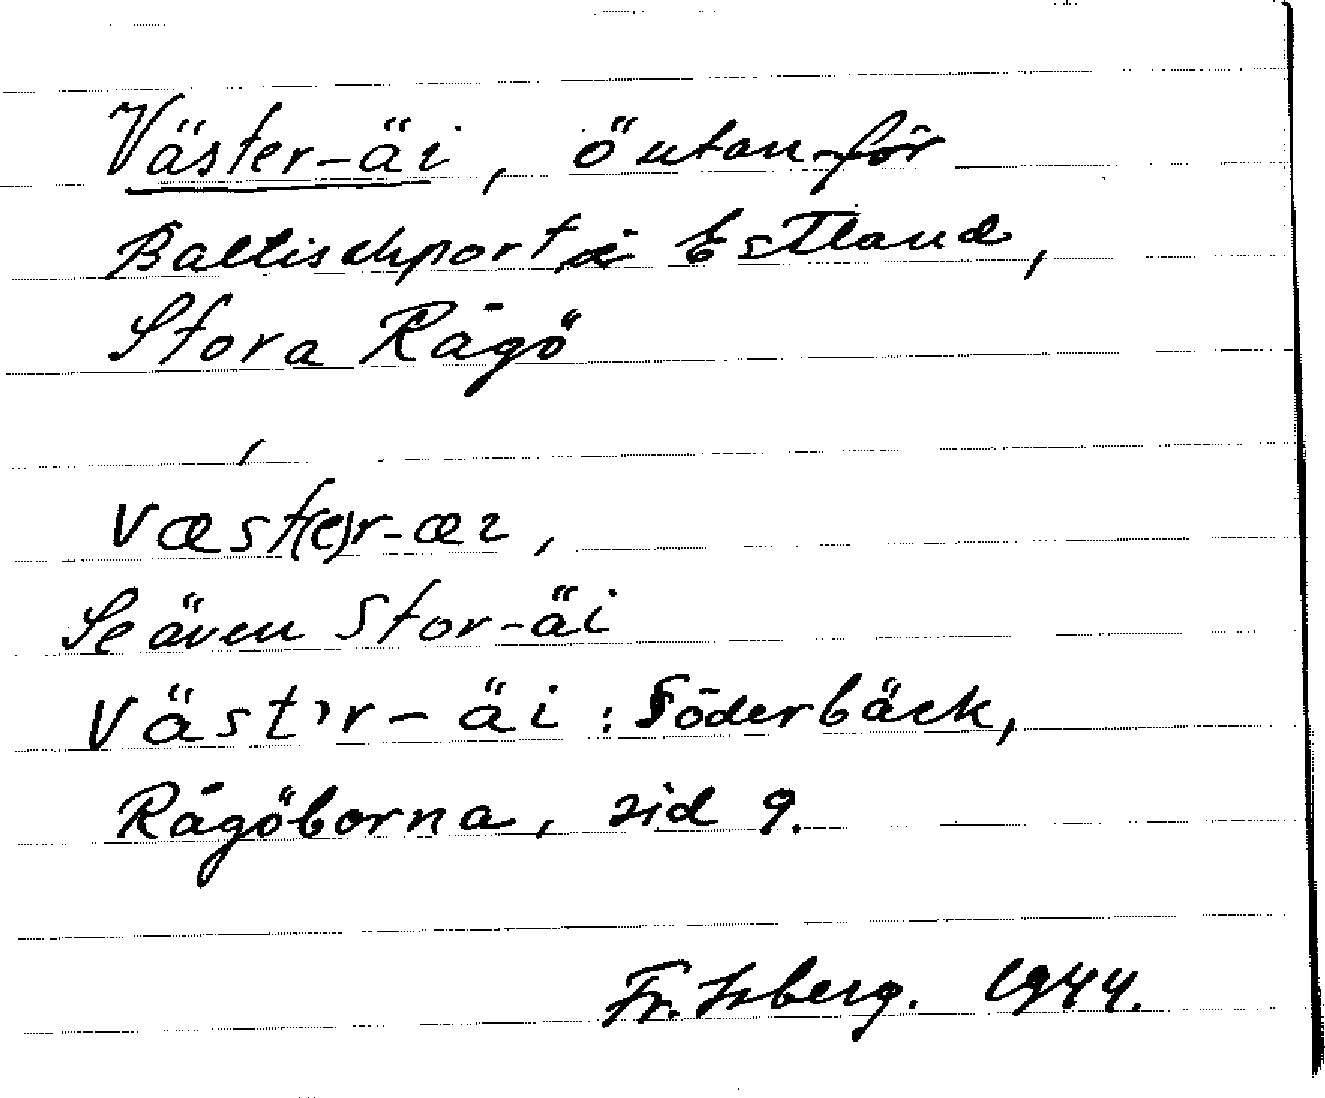 Väster-äi, ö utan-för
Baltischport i Estland,
Stora Rågö
væst(e)r-æi,
Se även Stor-äi
Väst'r-äi: Söderbäck,
Rågöborna, sid 9.
Fr. Isberg. 1944.